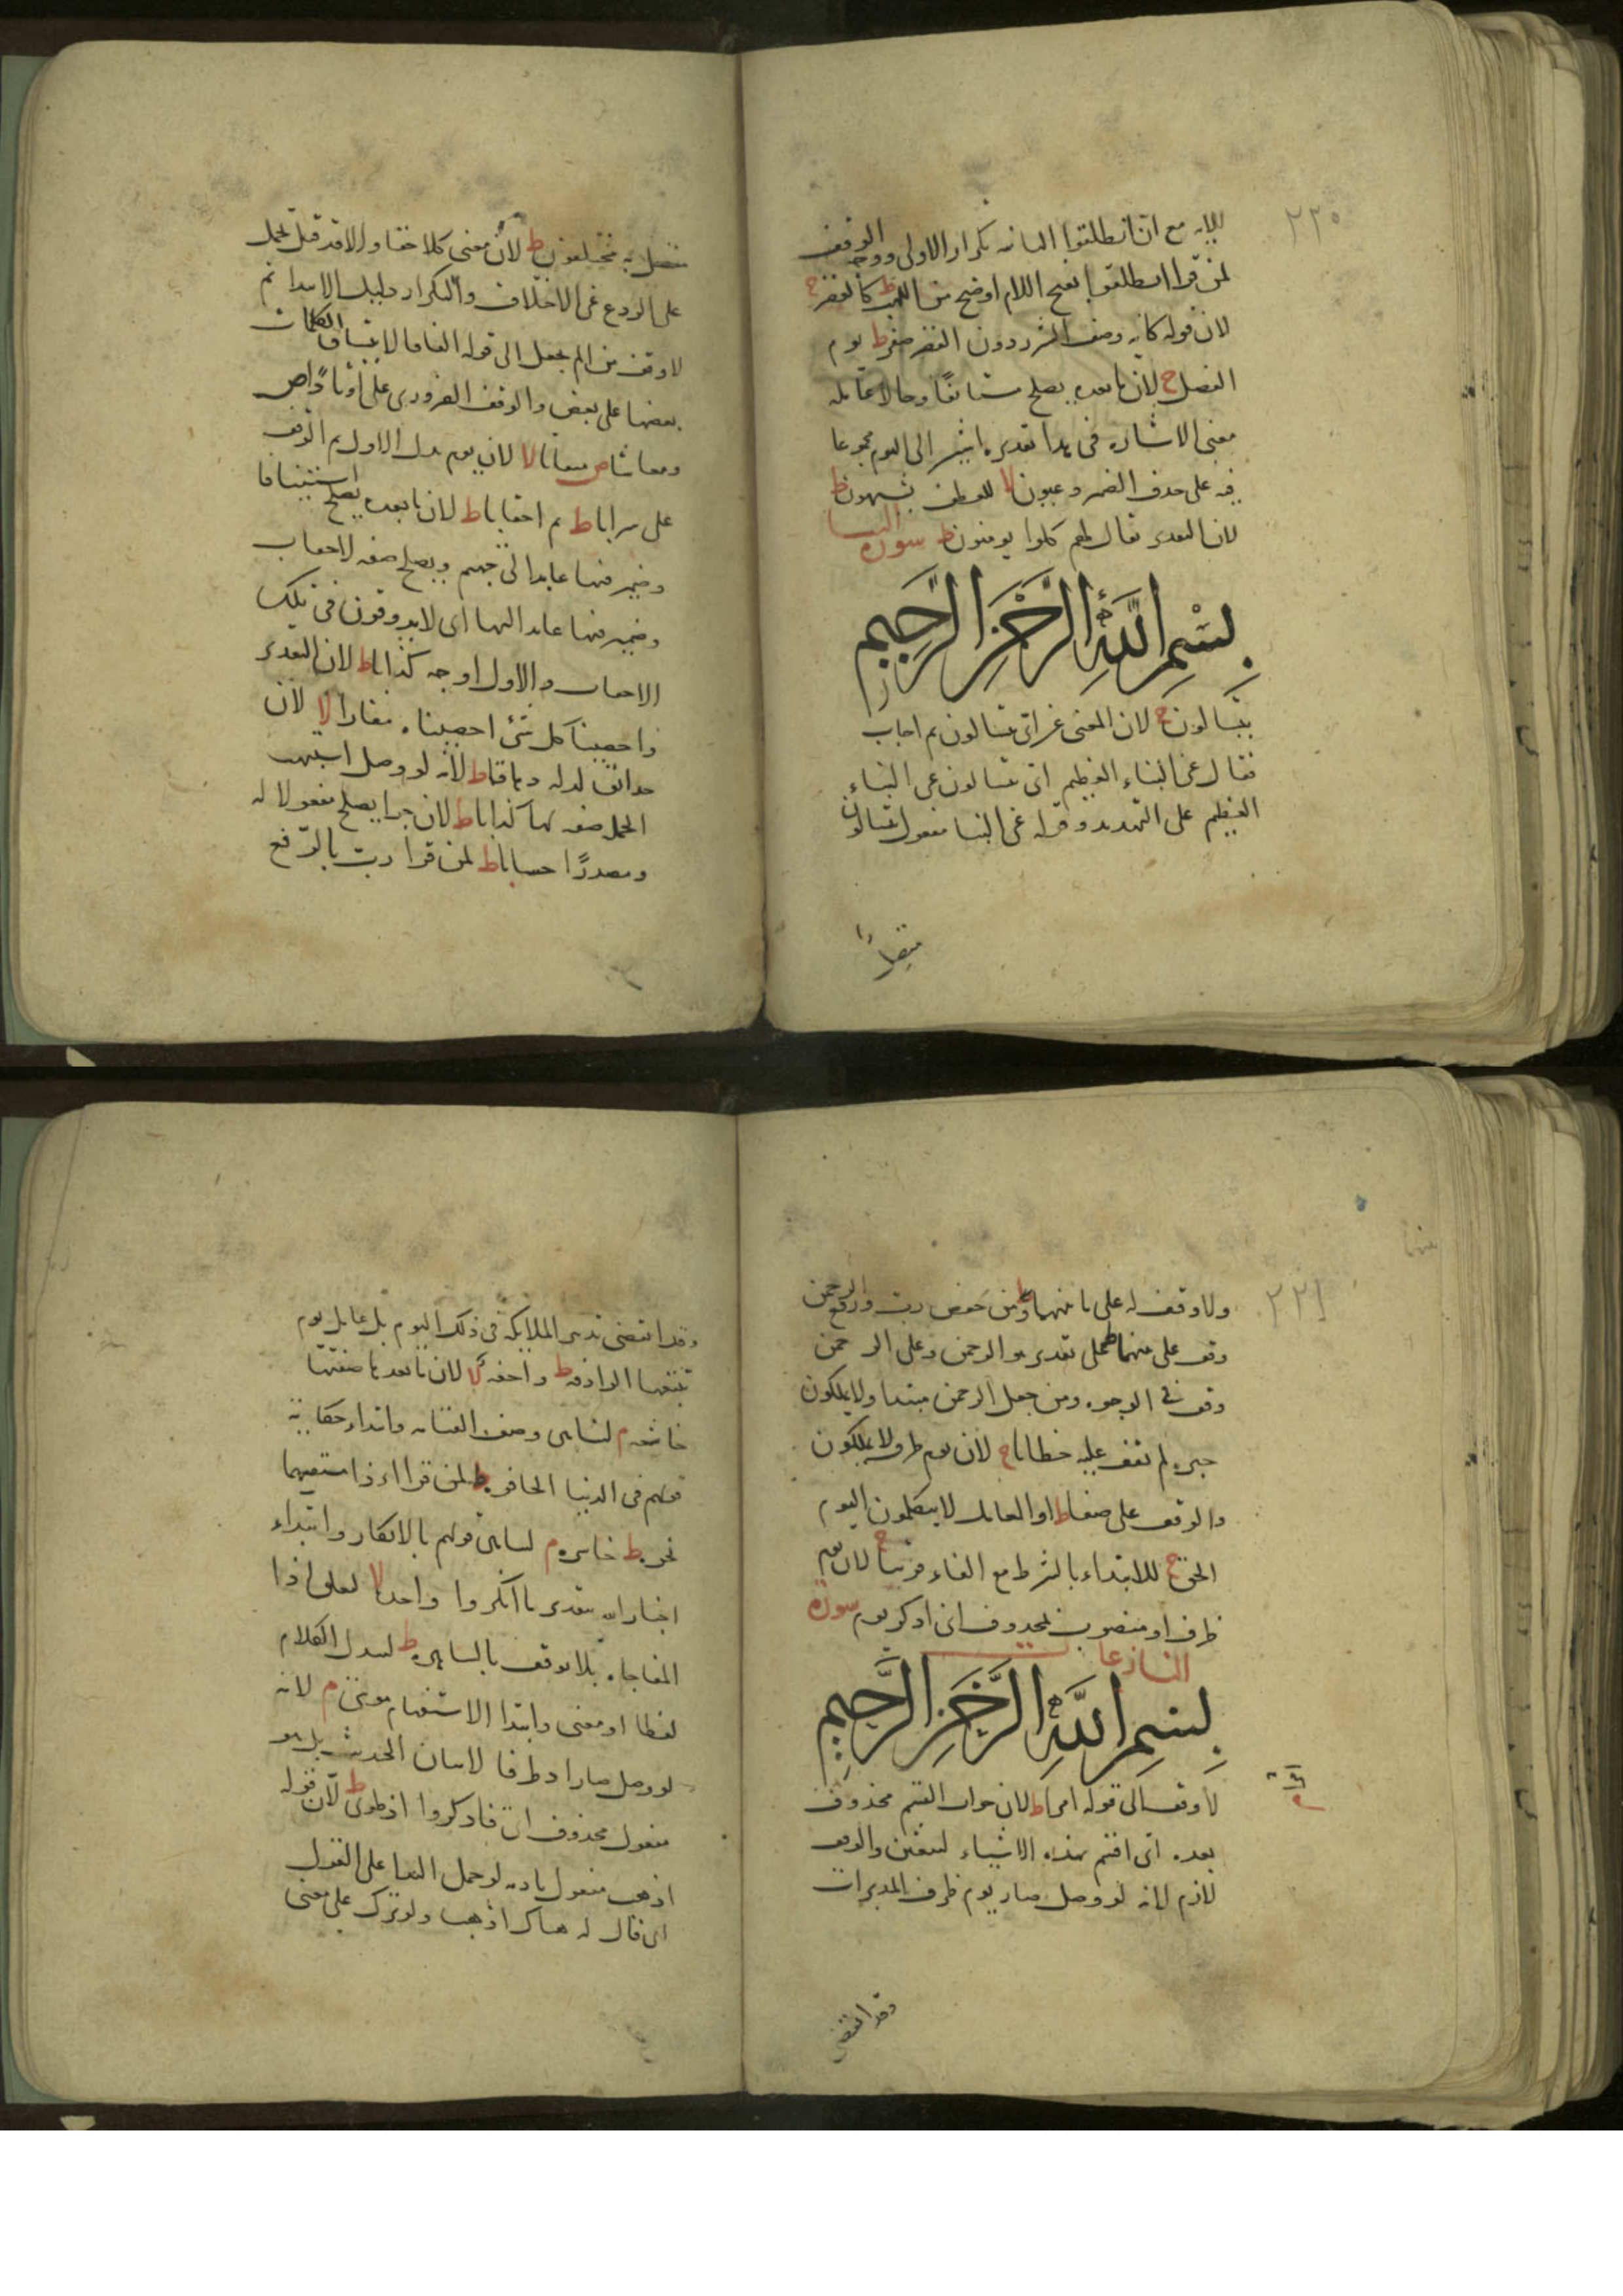 ٢٢٥
للابه مع ان انطلقوا الثانيه تكرار الاولى ووجه الوقف
لمن قرا انطلقوا بفتح اللام اوضح من اللهب ط كالقصر ج
لان قوله كانه وصف الشرر دون القصر صفر ط يوم
الفصل ج لان ما بعده يصلح مستانفا وحالا عامله
معنى الاشاره فى هذا تقديره اشير الى اليوم مجموعا
فيه على حذف الضمير وعيون لا للعطف يشتهون ط
لان التقدير يقال لهم كلوا يومنون ط سورة النبا
بسم الله الرحمن الرحيم
يتسالون ج لان المعنى عن اى يتسالون ثم اجاب
فقال عن النباء العظيم اى يتسالون عن النباء
العظيم على التهديد وقوله عن النبا مفعول يتسالون
متصل
متصل به مختلفون ط لان معنى كلا حقا والا فقد قيل يحمل
على الردع عن الاختلاف والتكرار دليل الابتدا ثم
لا وقف من الم نجعل الى قوله الفافا لاتساق الكلمات
بعضها على بعض والوقف الضرورى على اوتادا ص
ومعاشا ص ميقاتا لا لان يوم بدل الاول ثم الوقف
على سرابا ط ثم احقابا ط لان ما بعده يصلح استينافا
وضمير فيها عايدا الى جهنم ويصلح صفه لاحقاب
وضمير فيها عايد اليها اى لا يذوقون فى تلك
الاحقاب والاول اوجه كذابا ط لان التقدير
واحصينا كل شئ احصيناه مفازا لا لان
حدائق بدل له دهاقا ط لانه لو وصل اشتبهت
الجمله صفه لها كذابا ط لان جزا يصلح مفعولا له
ومصدرا حسابا ط لمن قرا رب بالرفع
٢٢١
ولا وقف له على ما بينهما ط ومن خفض رب ورفع الرحمن
وقف على بينهما ط على تقدير هو الرحمن وعلى الرحمن
وقف فى الوجوه ومن جعل الرحمن مبتدا ولا يملكون
خبره لم يقف عليه خطابا ج لان يوم ظرف لا يملكون
والوقف على صفا ط او العامل لا يتكلمون اليوم
الحق ج للابتداء بالشرط مع الفاء قريبا ج لان يوم
ظرف او منصوب بمحذوف اى اذكر يوم سورة
النازعات
بسم الله الرحمن الرحيم
لا وقف الى قوله امرا ط لان جواب القسم محذوف
بعده اى اقسم بهذه الاشياء لتبعثن والوقف
لازم لانه لو وصل صار يوم ظرف المدبرات
وقد انقضى
وقد انقضى تدبير الملايكه فى ذلك اليوم بل عامل يوم
تتبعها الرادفه ط واجفه لا لان ما بعدها صفتها
خاشعه م لتناهى وصف القيامه وابتداء حكاية
قولهم فى الدنيا الحافره ط لمن قرا اءذا مستفهما
نخره ط خاسره م لتناهى قولهم بالانكار وابتداء
اخبار الله بتقدير ما انكروا واحده لا لتعلق اذا
المفاجاه بلا توقف بالساهره ط لتبدل الكلام
لفظا او معنى وابتدا الاستفهام موسى م لانه
لو وصل صار اذ ظرفا لاتيان الحديث بل هو
مفعول محذوف اى فاذكروا اذ طوى ط لان قوله
اذهب مفعول ناديه لو حمل الندا على القول
اى قال له هناك اذهب ولو ترك على معنى